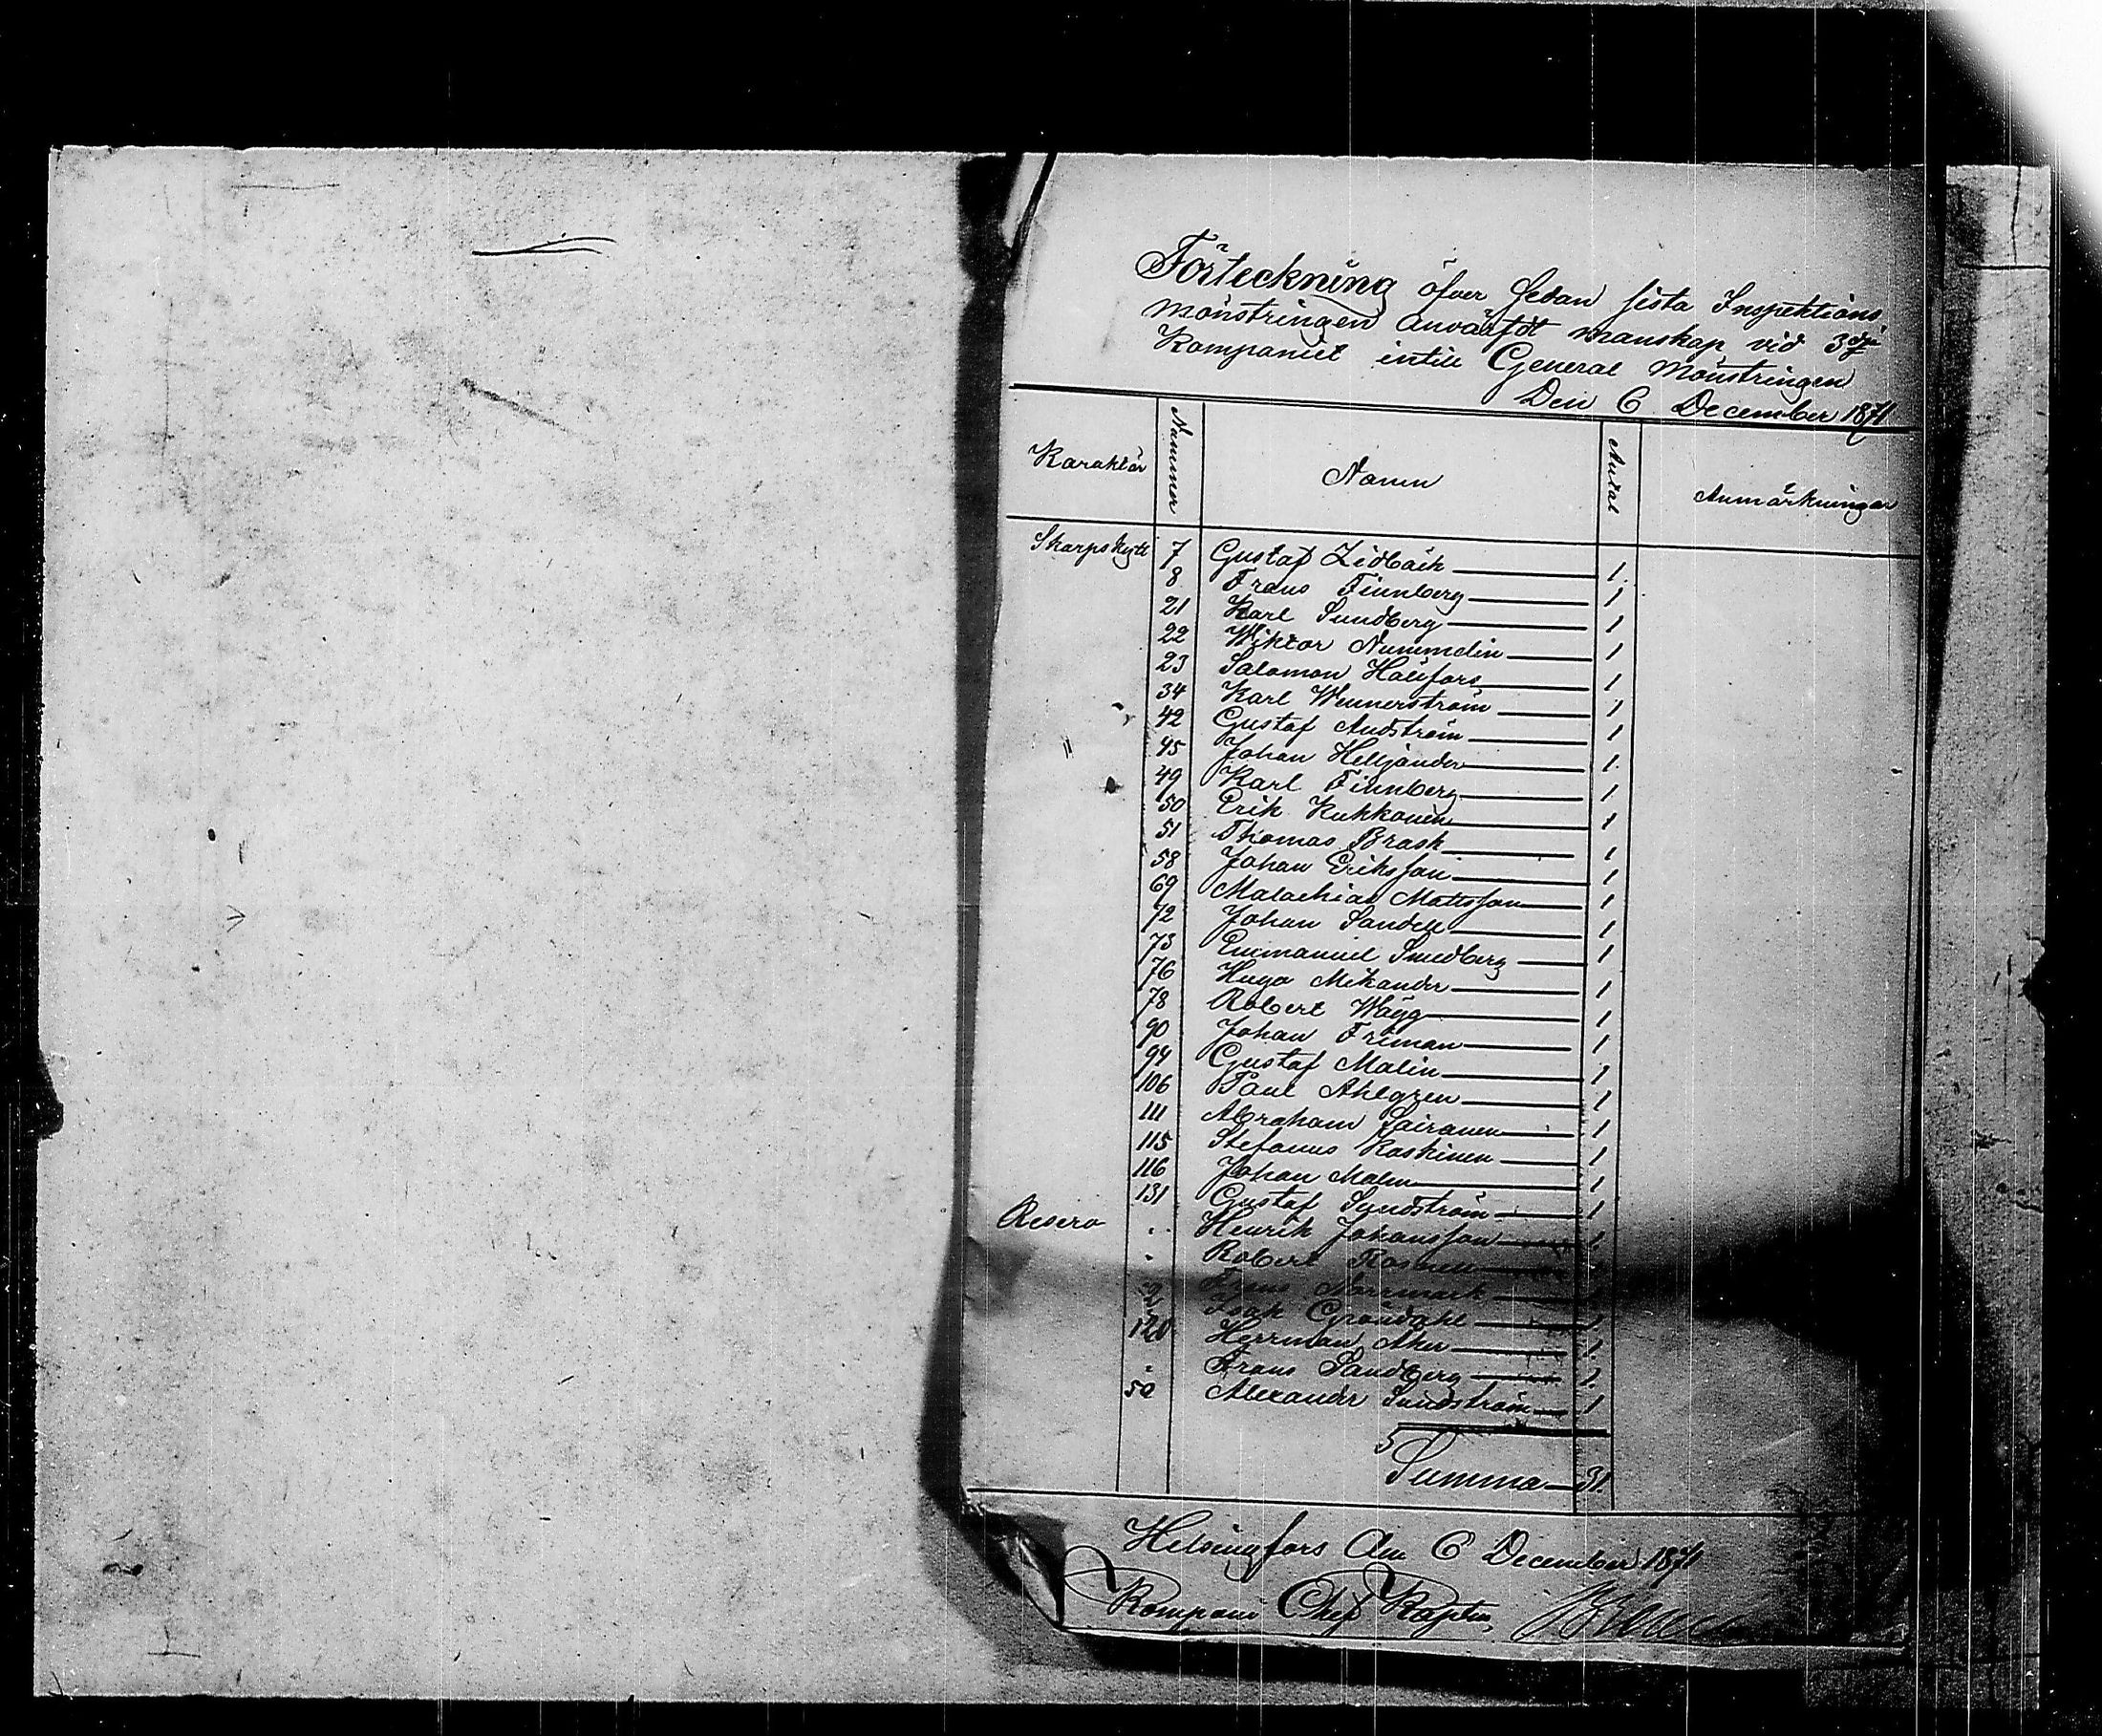 Förteckning öfver sedan sista Inspektions
mönstringen anväfdt manskap vid 3dje
Kompaniet intill General Mönstringen
Den 6 December 1871
Karaktär Nummer Namn Antal Anmärkningar
Skarpskytt 7 Gustaf Lidbäck 1.
8 Frans Finnberg 1
21 Karl Sundberg 1
22 Wiktor Nummelin 1
23 Salomon Hällfors 1
34 Karl Wennerström 1
42 Gustaf Andström 1
45 Johan Helljander 1.
49 Karl Finnberg 1
50 Erik Kukkonen 1
51 Thomas Brask 1
58 Johan Eriksson 1
69 Malachias Mattsson 1
72 Johan Sandell 1
73 Emmanuel Smedberg 1
76 Hugo Mikander 1
78 Robert Wägg 1
90 Johan Friman 1
94 Gustaf Malin 1
106 Paul Ahlgren 1
111 Abraham Sairanen 1
115 Stefanus Koskinen 1
116 Johan Malm 1
131 Gustaf Sundström 1
Reserv Henrik Johansson 1.
Robert Rosnell
Frans Norrmark
2 Isak Gröndahl 1.
120 Herrman Åker 1.
Frans Sandberg 1.
50 Alexander Sundström 1
Summa 31.
Helsingfors den 6 December 1871
Kompani Chef Kapten,